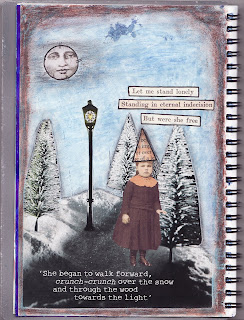 Let me stand lonely
Standing in eternal indecision
But were she free
'She began to walk forward,
crunch-crunch over the snow
and through the wood
towards the light'